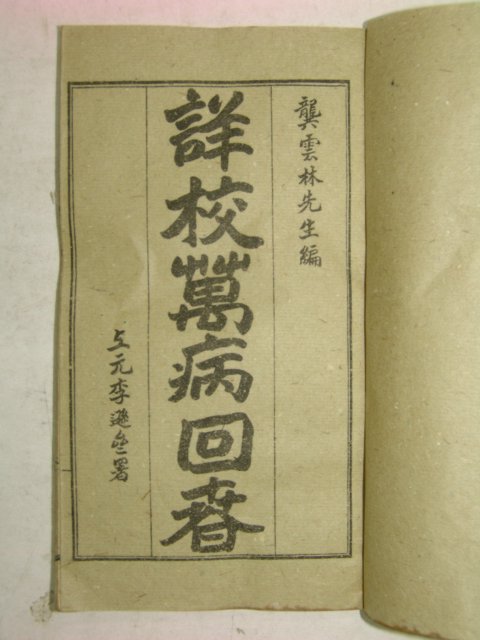 龔雲林先生編
詳校萬病回春
上元李遜盦署